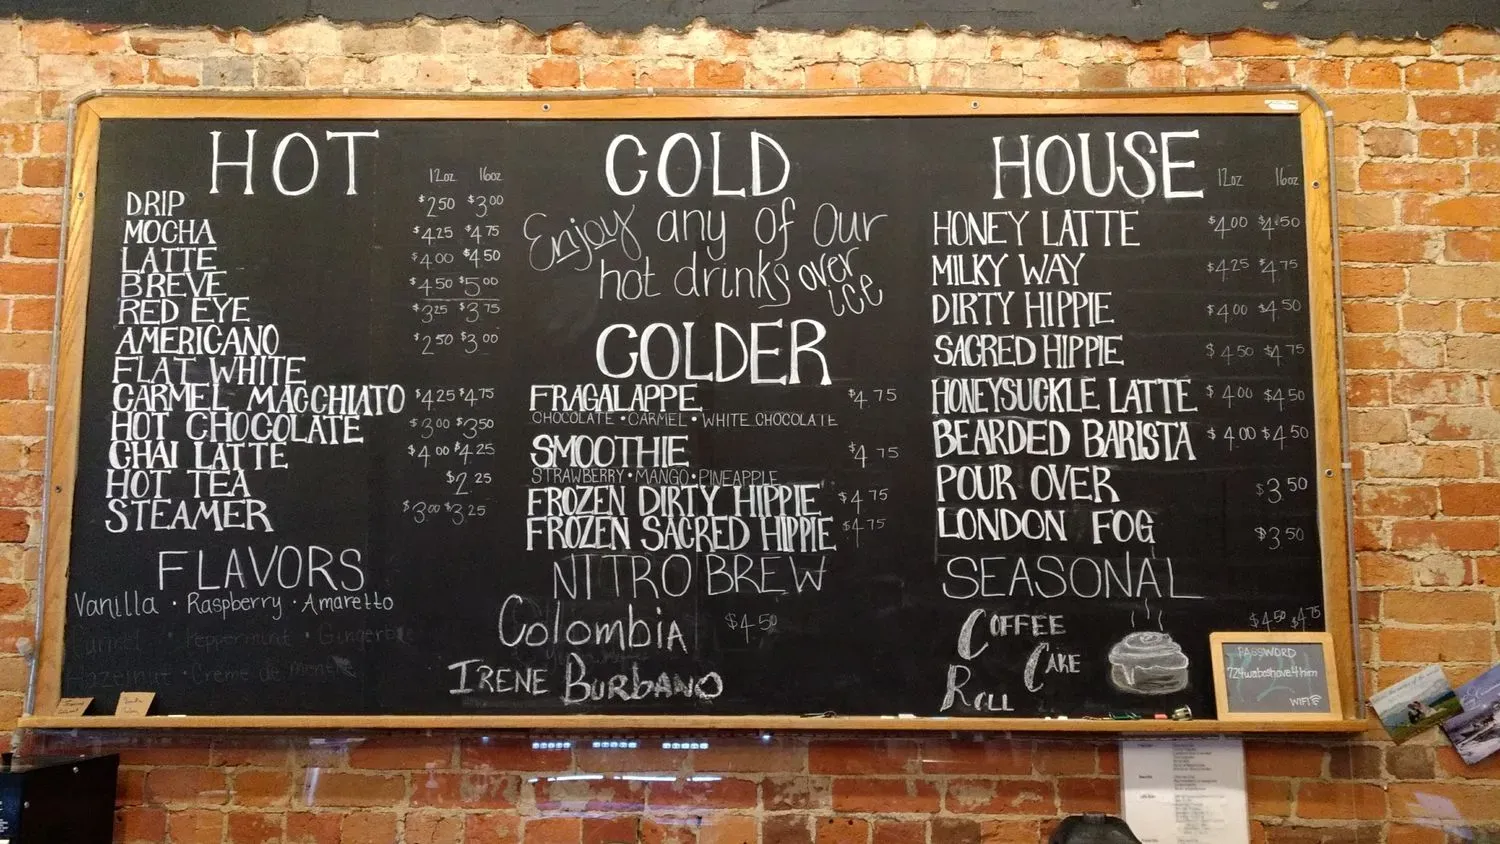 HOT
12oz 16oz
DRIP $2.50 $3.00
MOCHA $4.25 $4.75
LATTE $4.00 $4.50
BREVE $4.50 $5.00
RED EYE $3.25 $3.75
AMERICANO $2.50 $3.00
FLAT WHITE
CARMEL MACCHIATO $4.25 $4.75
HOT CHOCOLATE $3.00 $3.50
CHAI LATTE $4.00 $4.25
HOT TEA $2.25
STEAMER $3.00 $3.25
FLAVORS
Vanilla · Raspberry · Amaretto
Carmel · Peppermint ·
Hazelnut · Creme de Menthe
COLD
Enjoy any of Our
hot drinks over
ice
COLDER
FRAGALAPPE $4.75
CHOCOLATE • CARMEL • WHITE CHOCOLATE
SMOOTHIE $4.75
STRAWBERRY • MANGO • PINEAPPLE
FROZEN DIRTY HIPPIE $4.75
FROZEN SACRED HIPPIE $4.75
NITRO BREW
Colombia $4.50
IRENE BURBANO
HOUSE
12oz 16oz
HONEY LATTE $4.00 $4.50
MILKY WAY $4.25 $4.75
DIRTY HIPPIE $4.00 $4.50
SACRED HIPPIE $4.50 $4.75
HONEYSUCKLE LATTE $4.00 $4.50
BEARDED BARISTA $4.00 $4.50
POUR OVER $3.50
LONDON FOG $3.50
SEASONAL
$4.50 $4.75
COFFEE
CAKE
ROLL
PASSWORD
WIFI